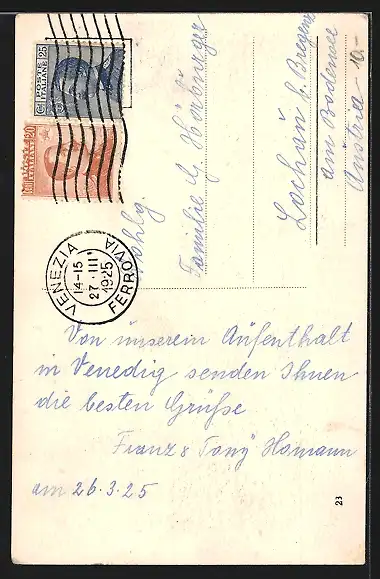 POSTE ITALIANE
C. 25
20
VENEZIA
14-15
27·III
1925
FERROVIA
Familie G Hörburger
Lochau b. Bregenz
am Bodensee
Austria
10.-
Von unserem Aufenthalt
in Venedig senden Ihnen
die besten Grüße
Franz & Tony Homann
am 26.3.25
23